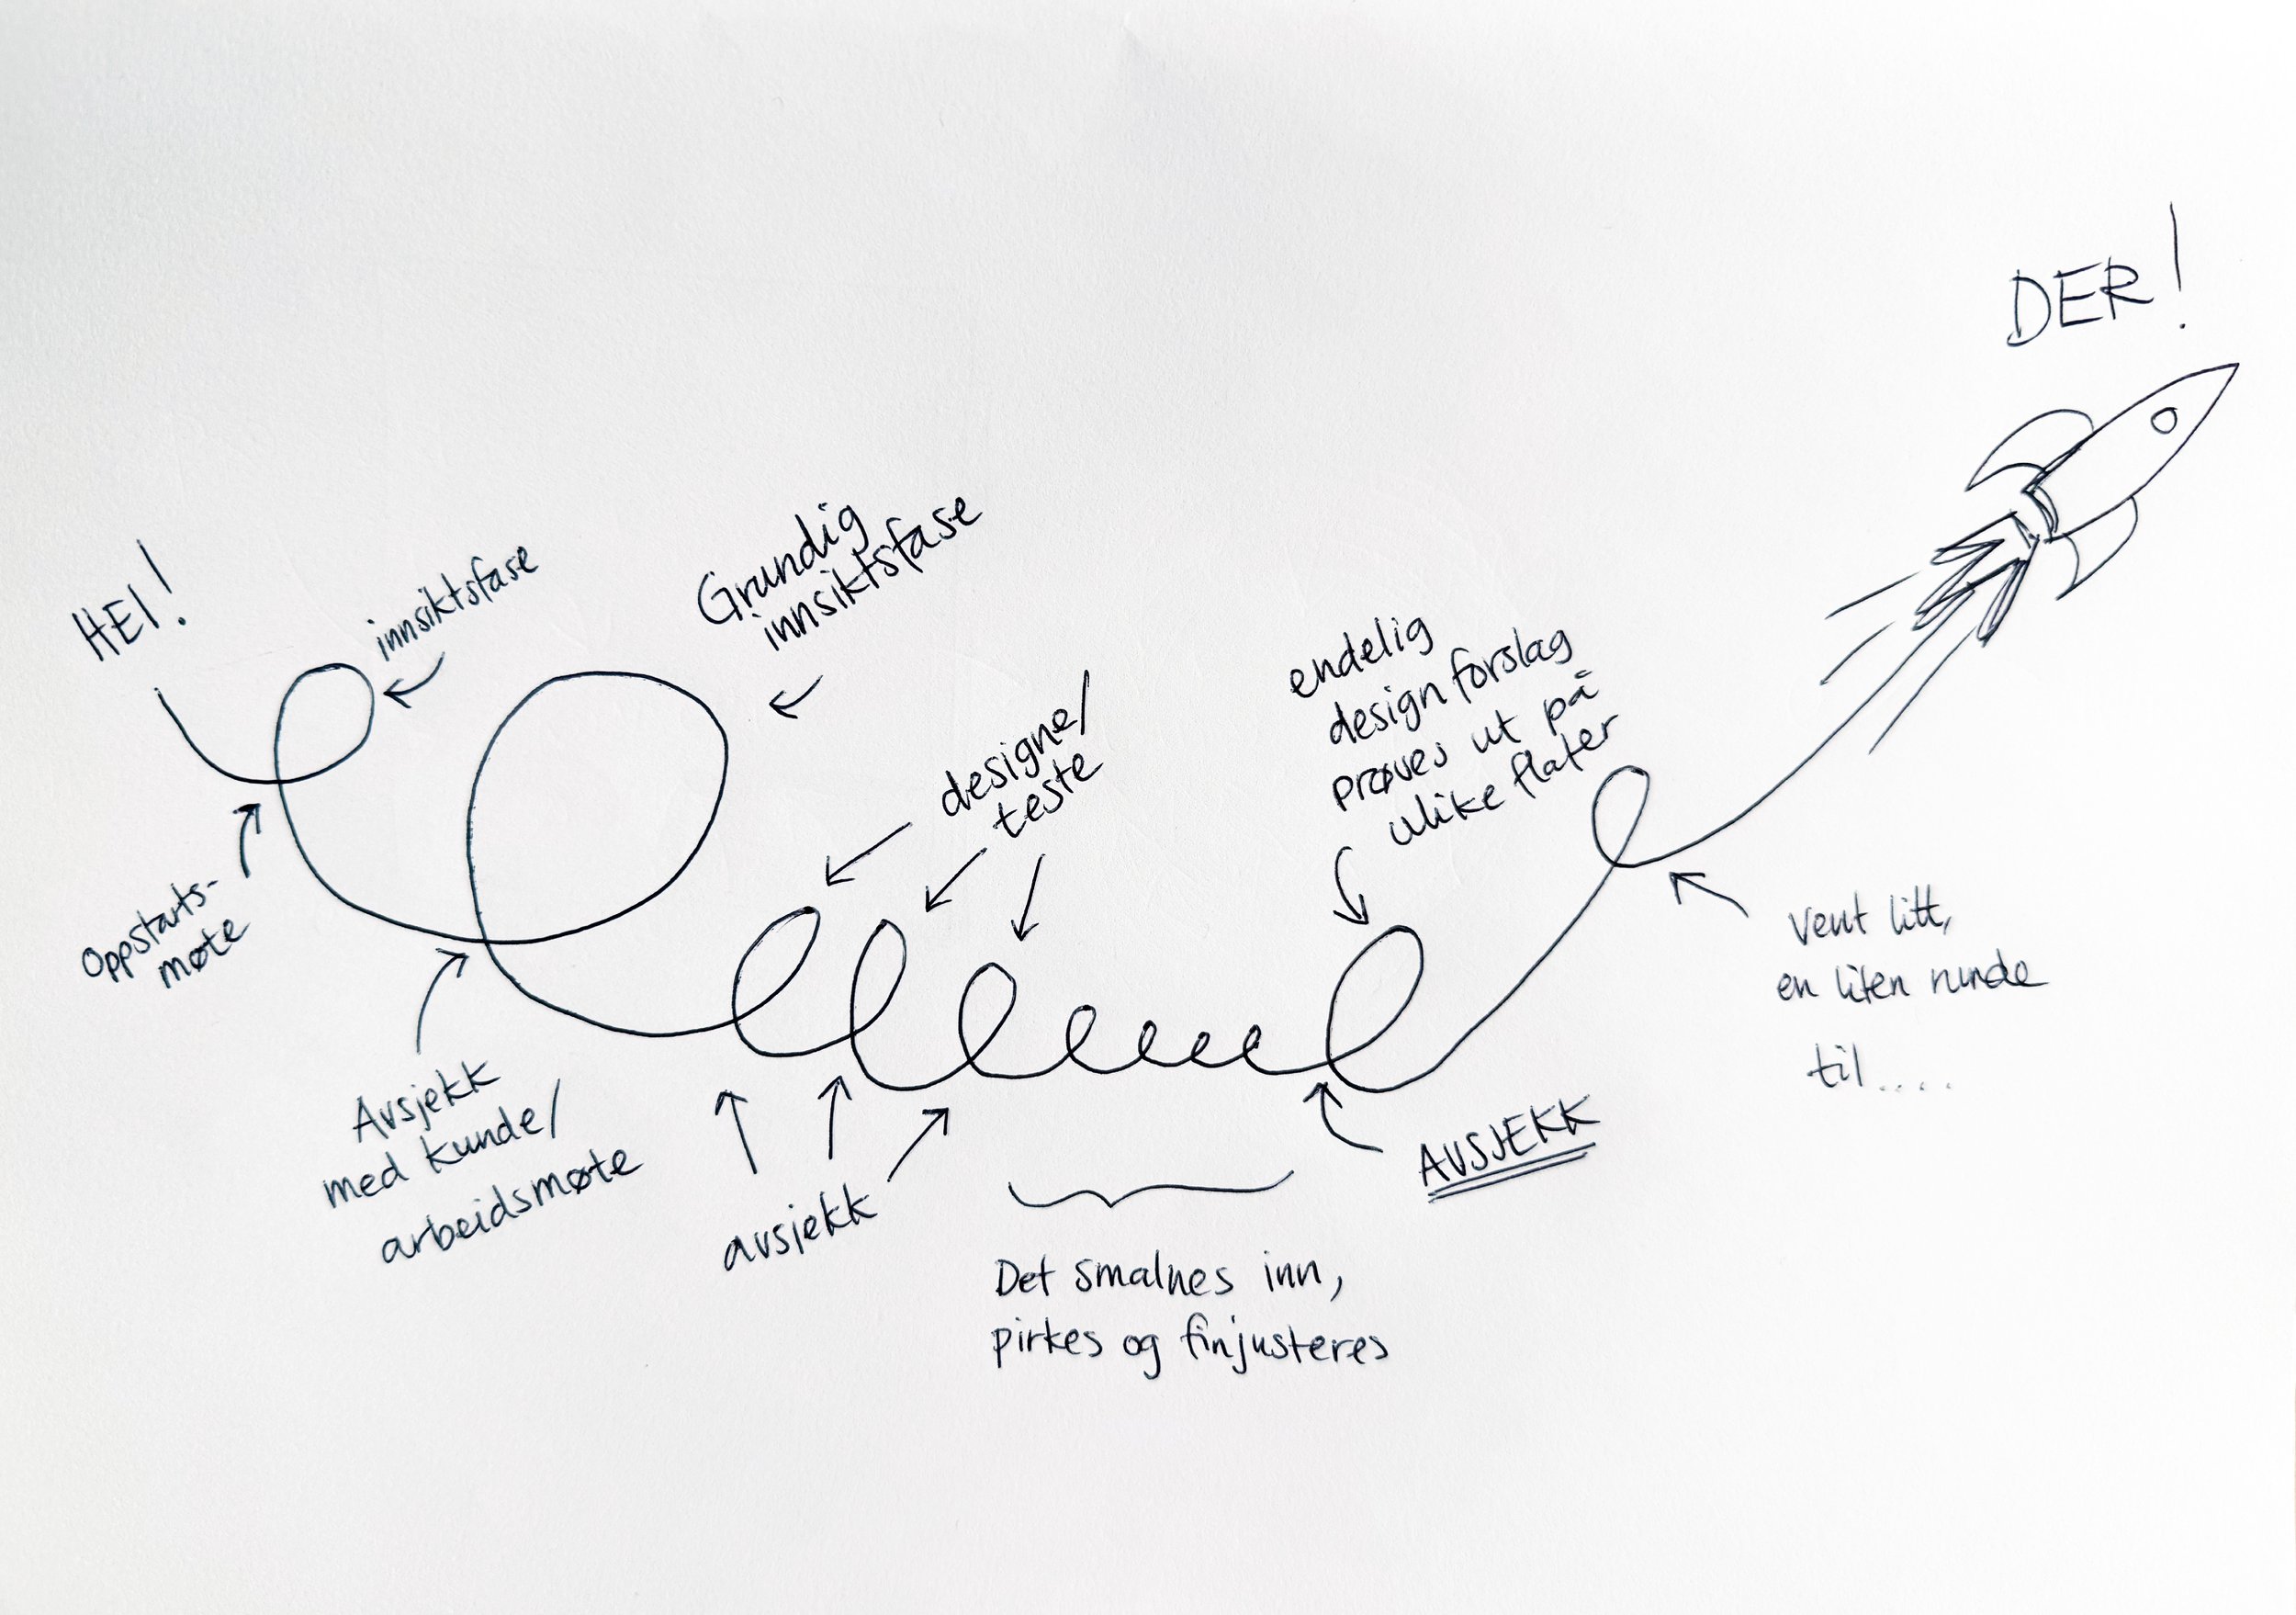 HEI!
innsiktsfase
Oppstarts-
møte
Grundig
innsiktsfase
Avsjekk
med kunde/
arbeidsmøte
designe/
teste
avsjekk
Det smalnes inn,
pirkes og finjusteres
endelig
designforslag
prøves ut på
ulike flater
AVSJEKK
Vent litt,
en liten runde
til....
DER!